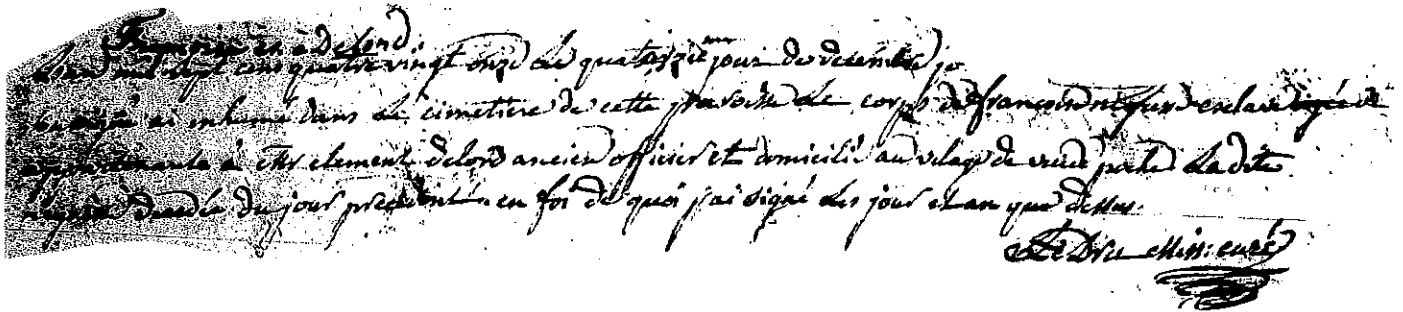 Françoise en à Delord
L'an mil sept cens quatre vingt onze le quatorzieme jour de decembre je
soussigné ai inhumé dans le cimetiere de cette paroisse le corps de françoise negresse esclave agée de
appartenante à Mr clement delord ancien officier et domicilié au vilage de
negresse decedée du jour precedent. en foi de quoi j'ai signé les jour et an que dessus.
Le Dru Miss: curé